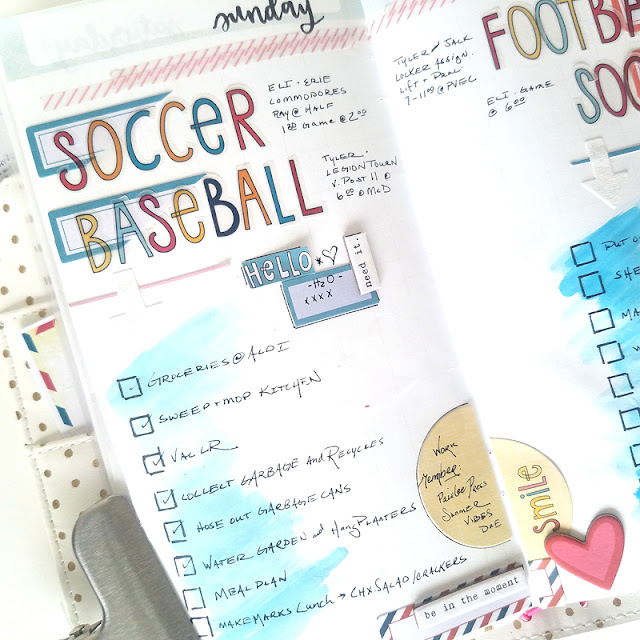 sunday
SOCCER
ELI - ERIE
COMMODORES
RAY @ HALF
1ST GAME @ 2:00
BASEBALL
TYLER -
LEGION TOURN
V. POST 11 @
6:00 @ McD
HELLO
need it.
- H2O -
xxxx
GROCERIES @ ALDI
SWEEP + MOP KITCHEN
VAC LR
COLLECT GARBAGE and RECYCLES
HOSE OUT GARBAGE CANS
WATER GARDEN and Hang PLANTERS
MEAL PLAN
MAKE MARKS Lunch → CHX SALAD/CRACKERS
Work
Member:
Paislee Press
Summer
VIBES
DUE
be in the moment
TYLER / JACK
LOCKER ASSIGN.
LIFT + PRAC
7-11:00 @ PVEC
FOOTB
ELI - GAME
@ 6:00
SOC
PUT O
SHE
MA
W
smile